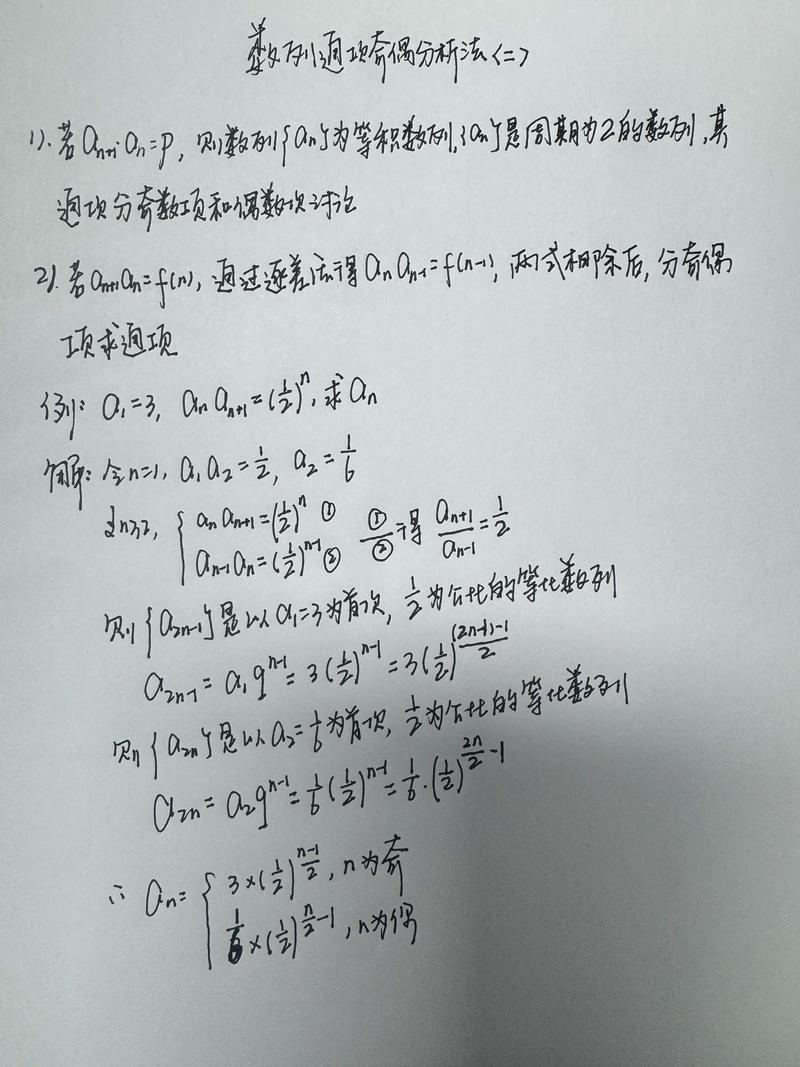 数列通项奇偶分析法<二>
1). 若 aₙ₊₁·aₙ=p, 则数列{aₙ}为等积数列,{aₙ}是周期为2的数列,其
通项分奇数项和偶数项讨论
2). 若aₙ₊₁aₙ=f(n), 通过逐差法得 aₙaₙ₋₁=f(n-1), 两式相除后, 分奇偶
项求通项
例: a₁=3, aₙaₙ₊₁=(1/2)ⁿ, 求aₙ
解: 令n=1, a₁a₂=1/2, a₂=1/6
当n≥2, { aₙaₙ₊₁=(1/2)ⁿ ① ①/② 得 aₙ₊₁/aₙ₋₁=1/2
aₙ₋₁aₙ=(1/2)ⁿ⁻¹ ②
则{a₂ₙ₋₁}是以a₁=3为首项, 1/2为公比的等比数列
a₂ₙ₋₁=a₁qⁿ⁻¹=3(1/2)ⁿ⁻¹=3(1/2)^((2n-1)-1)/2
则{a₂ₙ}是以a₂=1/6为首项, 1/2为公比的等比数列
a₂ₙ=a₂qⁿ⁻¹=1/6(1/2)ⁿ⁻¹=1/6·(1/2)^(2n/2-1)
∴ aₙ= { 3×(1/2)^((n-1)/2), n为奇
1/6×(1/2)^(n/2-1), n为偶